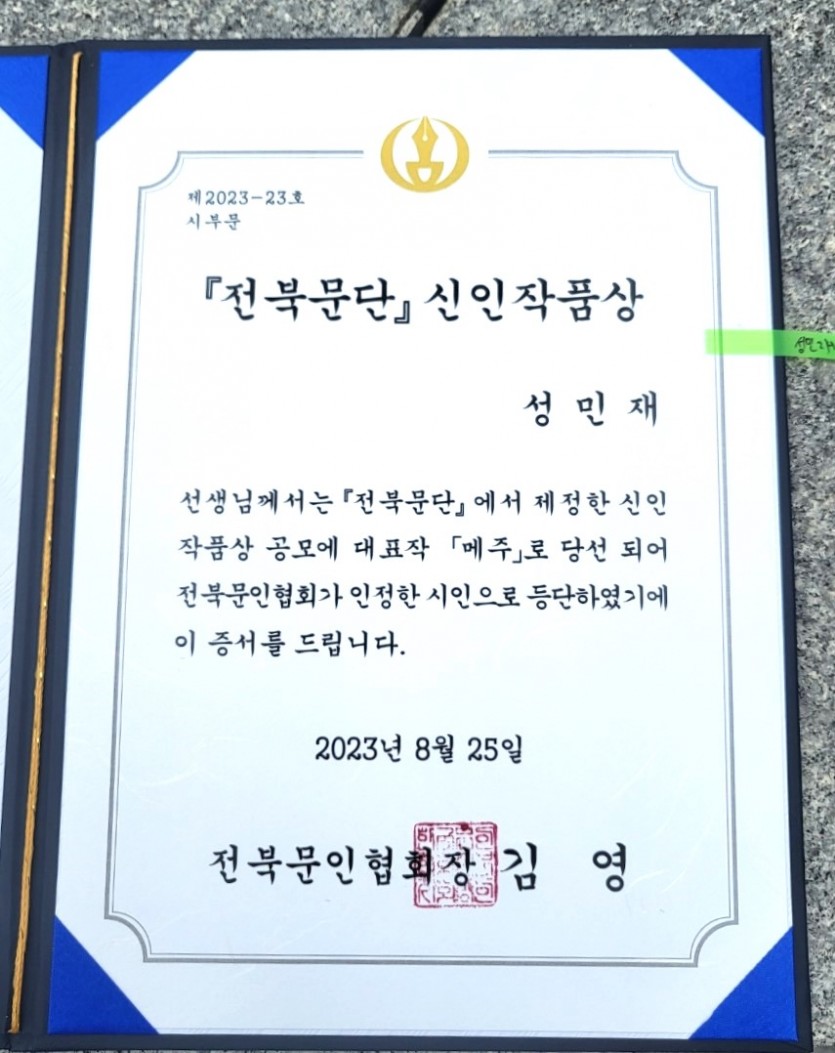 제2023-23호
시부문
『전북문단』 신인작품상
성 민 재
선생님께서는 『전북문단』에서 제정한 신인
작품상 공모에 대표작 「메주」로 당선 되어
전북문인협회가 인정한 시인으로 등단하였기에
이 증서를 드립니다.
2023년 8월 25일
전북문인협회장 김 영